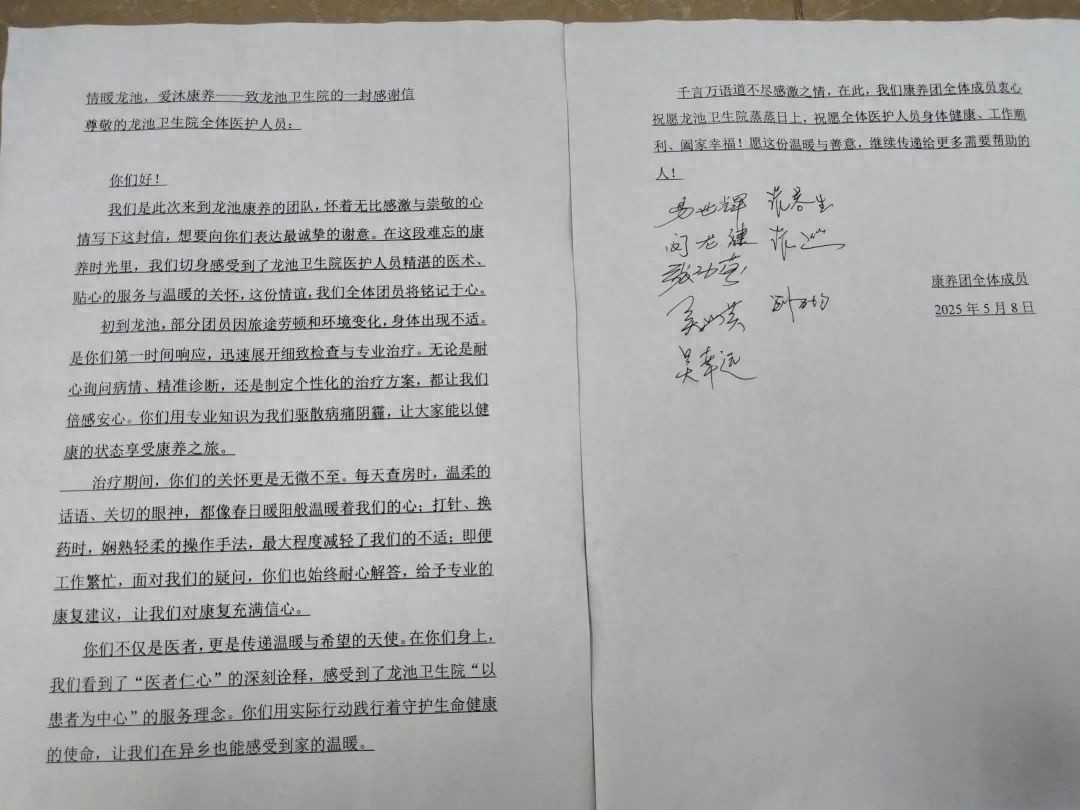 情暖龙池，爱沐康养——致龙池卫生院的一封感谢信
尊敬的龙池卫生院全体医护人员：
你们好！
我们是此次来到龙池康养的团队，怀着无比感激与崇敬的心
情写下这封信，想要向你们表达最诚挚的谢意。在这段难忘的康
养时光里，我们切身感受到了龙池卫生院医护人员精湛的医术、
贴心的服务与温暖的关怀，这份情谊，我们全体团员将铭记于心。
初到龙池，部分团员因旅途劳顿和环境变化，身体出现不适。
是你们第一时间响应，迅速展开细致检查与专业治疗。无论是耐
心询问病情、精准诊断，还是制定个性化的治疗方案，都让我们
倍感安心。你们用专业知识为我们驱散病痛阴霾，让大家能以健
康的状态享受康养之旅。
治疗期间，你们的关怀更是无微不至。每天查房时，温柔的
话语、关切的眼神，都像春日暖阳般温暖着我们的心；打针、换
药时，娴熟轻柔的操作手法，最大程度减轻了我们的不适；即便
工作繁忙，面对我们的疑问，你们也始终耐心解答，给予专业的
康复建议，让我们对康复充满信心。
你们不仅是医者，更是传递温暖与希望的天使。在你们身上，
我们看到了“医者仁心”的深刻诠释，感受到了龙池卫生院“以
患者为中心”的服务理念。你们用实际行动践行着守护生命健康
的使命，让我们在异乡也能感受到家的温暖。
千言万语道不尽感激之情，在此，我们康养团全体成员衷心
祝愿龙池卫生院蒸蒸日上，祝愿全体医护人员身体健康、工作顺
利、阖家幸福！愿这份温暖与善意，继续传递给更多需要帮助的
人！
吴幸远
康养团全体成员
2025 年 5 月 8 日